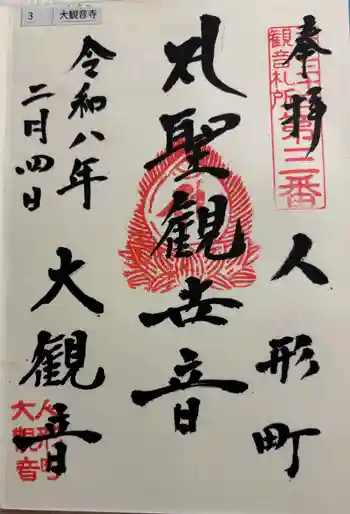 3 大観音寺
奉拝
観音札所
第三番
人形町
聖観世音
令和八年
二月四日
大観音
人形町
大観音